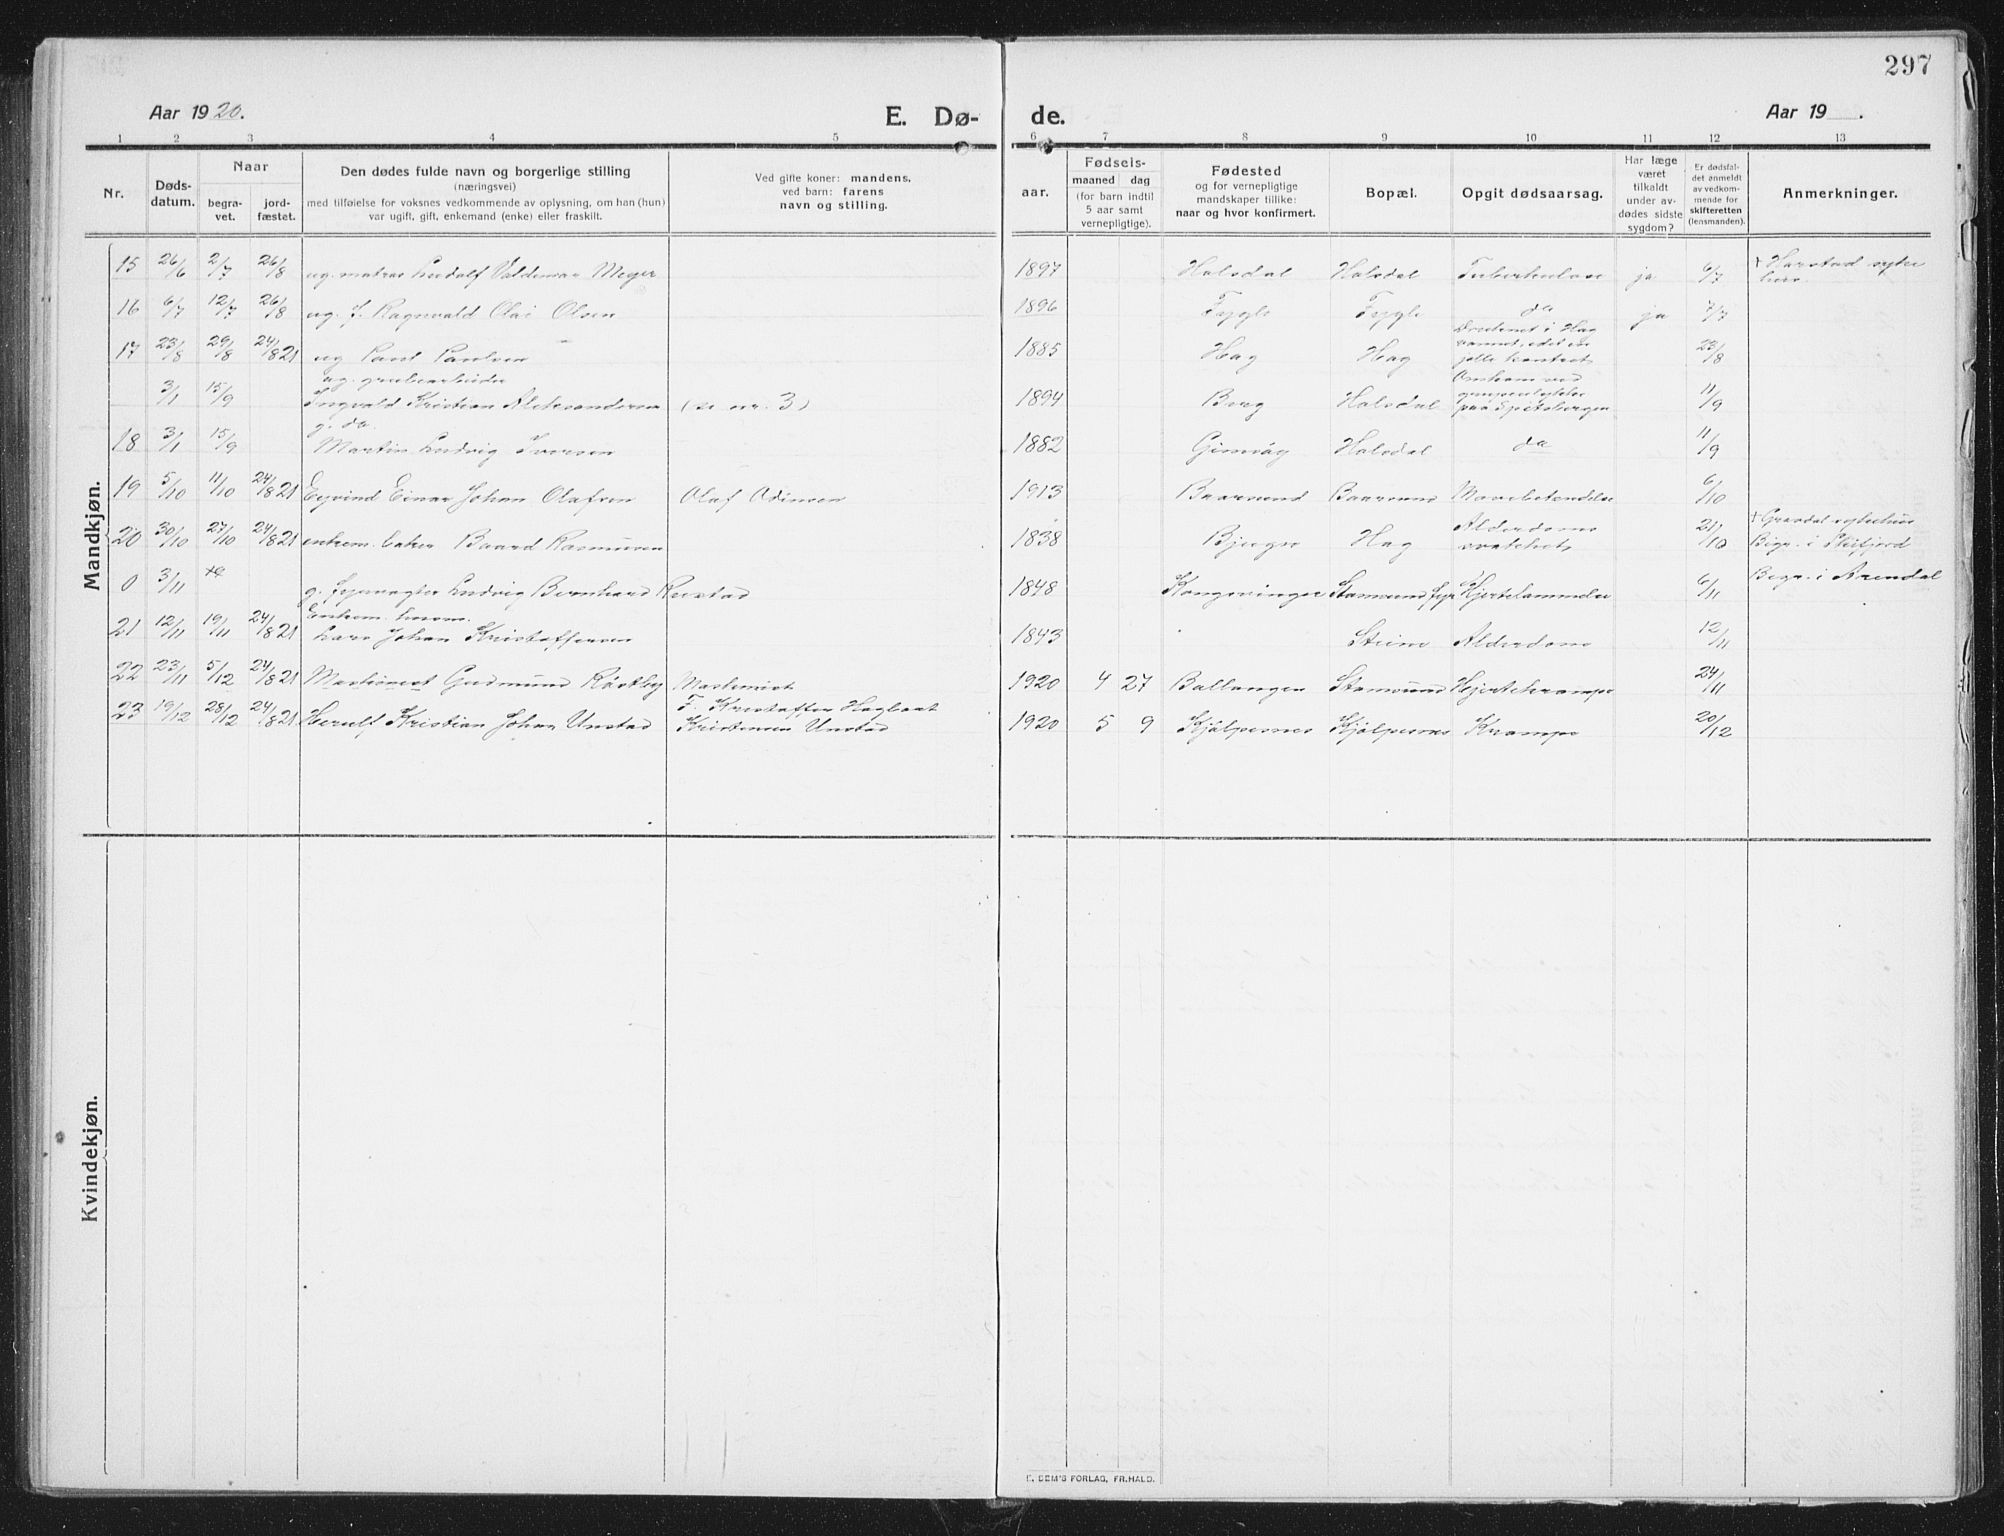 297
Aar 1920.
E. Dø-
de.
Aar 19 .
1 2 3 4 5 6 7 8 9 10 11 12 13
Nr.
Døds-
datum.
Naar
begra-
vet.
jord-
fæstet.
Den dødes fulde navn og borgerlige stilling
(næringsvei)
med tilføielse for voksnes vedkommende av oplysning, om han (hun)
var ugift, gift, enkemand (enke) eller fraskilt.
Ved gifte koner: mandens,
ved barn: farens
navn og stilling.
aar.
Fødsels-
maaned dag
(for barn indtil
5 aar samt
vernepligtige).
Fødested
og for vernepligtige
mandskaper tillike:
naar og hvor konfirmert.
Bopæl.
Opgit dødsaarsag.
Har læge
været
tilkaldt
under av-
dødes sidste
sygdom?
Er dødsfal-
det anmeldt
av vedkom-
mende for
skifteretten
(lensmanden).
Anmerkninger.
Mandkjøn.
15 26/6 2/7 26/8 ug. matros Ludolf Valdemar Meyer 1897 Halsdal Halsdal Tuberkulose ja 6/7 + Harstad syke
hus.
16 6/7 12/7 26/8 ug. f. Ragnvald Olai Olsen 1896 Fygle Fygle da ja 7/7
17 23/8 29/8 24/8 21 ug Paul Paulsen 1885 Hag Hag Druknet i Hag
vannet, idet en
jolle kantret 23/8
ug. grubearbeider
3/1 15/9 Ingvald Kristian Aleksandersen (se nr. 3) 1894 Berg Halsdal Omkom ved
grubeulykke
paa Spitsbergen 11/9
g. da.
18 3/1 15/9 Martin Ludvig Iversen 1882 Gimsøy Halsdal da 11/9
19 5/10 11/10 24/8 21 Eyvind Einar Johan Olafsen Olaf Odinsen 1913 Baarsund Baarsund Mavebetendelse 6/10
20 30/10 27/10 24/8 21 enkem. Baard Rasmussen 1838 Bjerge Hag Alderdoms
svakhet 21/10 + Gravdal sykehus
Begr. i
0 3/11 g. fyrvogter Ludvig Bernhard Rustad 1848 Kongsvinger Stamsund fyr Hjertelammelse 6/11 Begr. i Arendal
Enkem.
21 12/11 19/11 24/8 21 Lars Johan Kristoffersen 1843 Steine Alderdom 12/11
22 23/11 5/12 24/8 21 Gudmund Røstby Maskinist 1920 4 27 Ballangen Stamsund Hjertekrampe 24/11
23 19/12 28/12 24/8 21 Herulf Kristian Johan Unstad F. Kristoffer Hagbart
Kristensen Unstad 1920 5 9 Kjølpesnes Kjølpesnes Krampe 20/12
Kvindekjøn.
E. SEM'S FORLAG, FR.HALD.